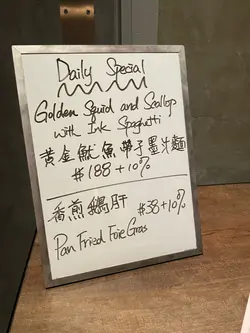 Daily Special
Golden Squid and Scallop
with Ink Spaghetti
黃金魷魚帶子墨汁麵
$188 + 10%
香煎鵝肝 $38 + 10%
Pan Fried Foie Gras